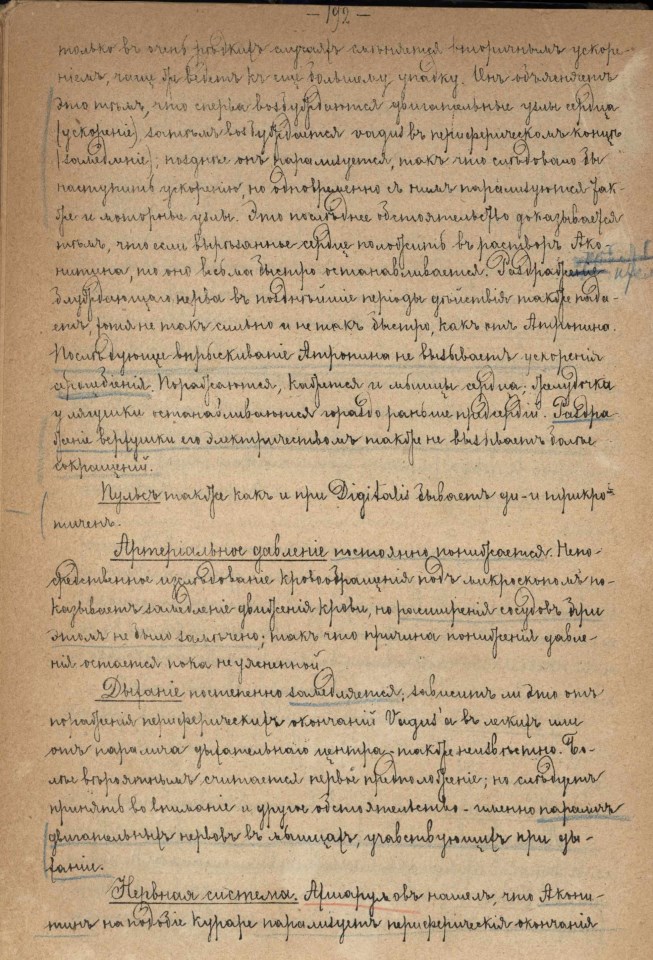 — 192 —
только въ очень рѣдкихъ случаяхъ смѣняется вторичнымъ ускоре-
ніемъ, чаще же ведетъ къ еще большему упадку. Онъ объясняетъ
это тѣмъ, что сперва возбуждаются двигательные узлы сердца
(ускореніе) затѣмъ возбуждается vagus въ периферическомъ концѣ
(замедленіе); позднѣе онъ парализуется, такъ что слѣдовало бы
наступить ускоренію, но одновременно съ нимъ парализуются так-
же и моторные узлы. Это послѣднее обстоятельство доказывается
тѣмъ, что если вырѣзанное сердце положить въ растворъ Ако-
нитина, то оно весьма быстро останавливается. Раздраженіе
блуждающаго нерва въ позднѣйшіе періоды дѣйствія также пада-
етъ, хотя не такъ сильно и не такъ быстро, какъ отъ Атропина.
Послѣдующее впрыскиваніе Атропина не вызываетъ ускоренія
сердцебіенія. Поражаются, кажется и мышцы сердца; желудочки
у лягушки останавливаются гораздо раньше предсердій. Раздра-
женіе верхушки его электричествомъ также не вызываетъ болѣе
сокращеній.
Пульсъ также какъ и при Digitalis бываетъ ди- и трикро-
тиченъ.
Артеріальное давленіе постоянно понижается. Непо-
средственное изслѣдованіе кровообращенія подъ микроскопомъ по-
казываетъ замедленіе движенія крови, но расширенія сосудовъ при
этомъ не было замѣчено; такъ что причина пониженія давле-
нія остается пока не уясненной.
Дыханіе постепенно замедляется; зависитъ ли это отъ
пораженія периферическихъ окончаній Vagus'а въ легкихъ или
отъ паралича дыхательнаго центра, также неизвѣстно. Бо-
лѣе вѣроятнымъ считается первое предположеніе; но слѣдуетъ
принять во вниманіе и другое обстоятельство - именно параличъ
двигательныхъ нервовъ въ мышцахъ, учавствующихъ при ды-
ханіе.
Нервная система. нашелъ, что Акони-
тинъ на подобіе Кураре парализуетъ периферическія окончанія